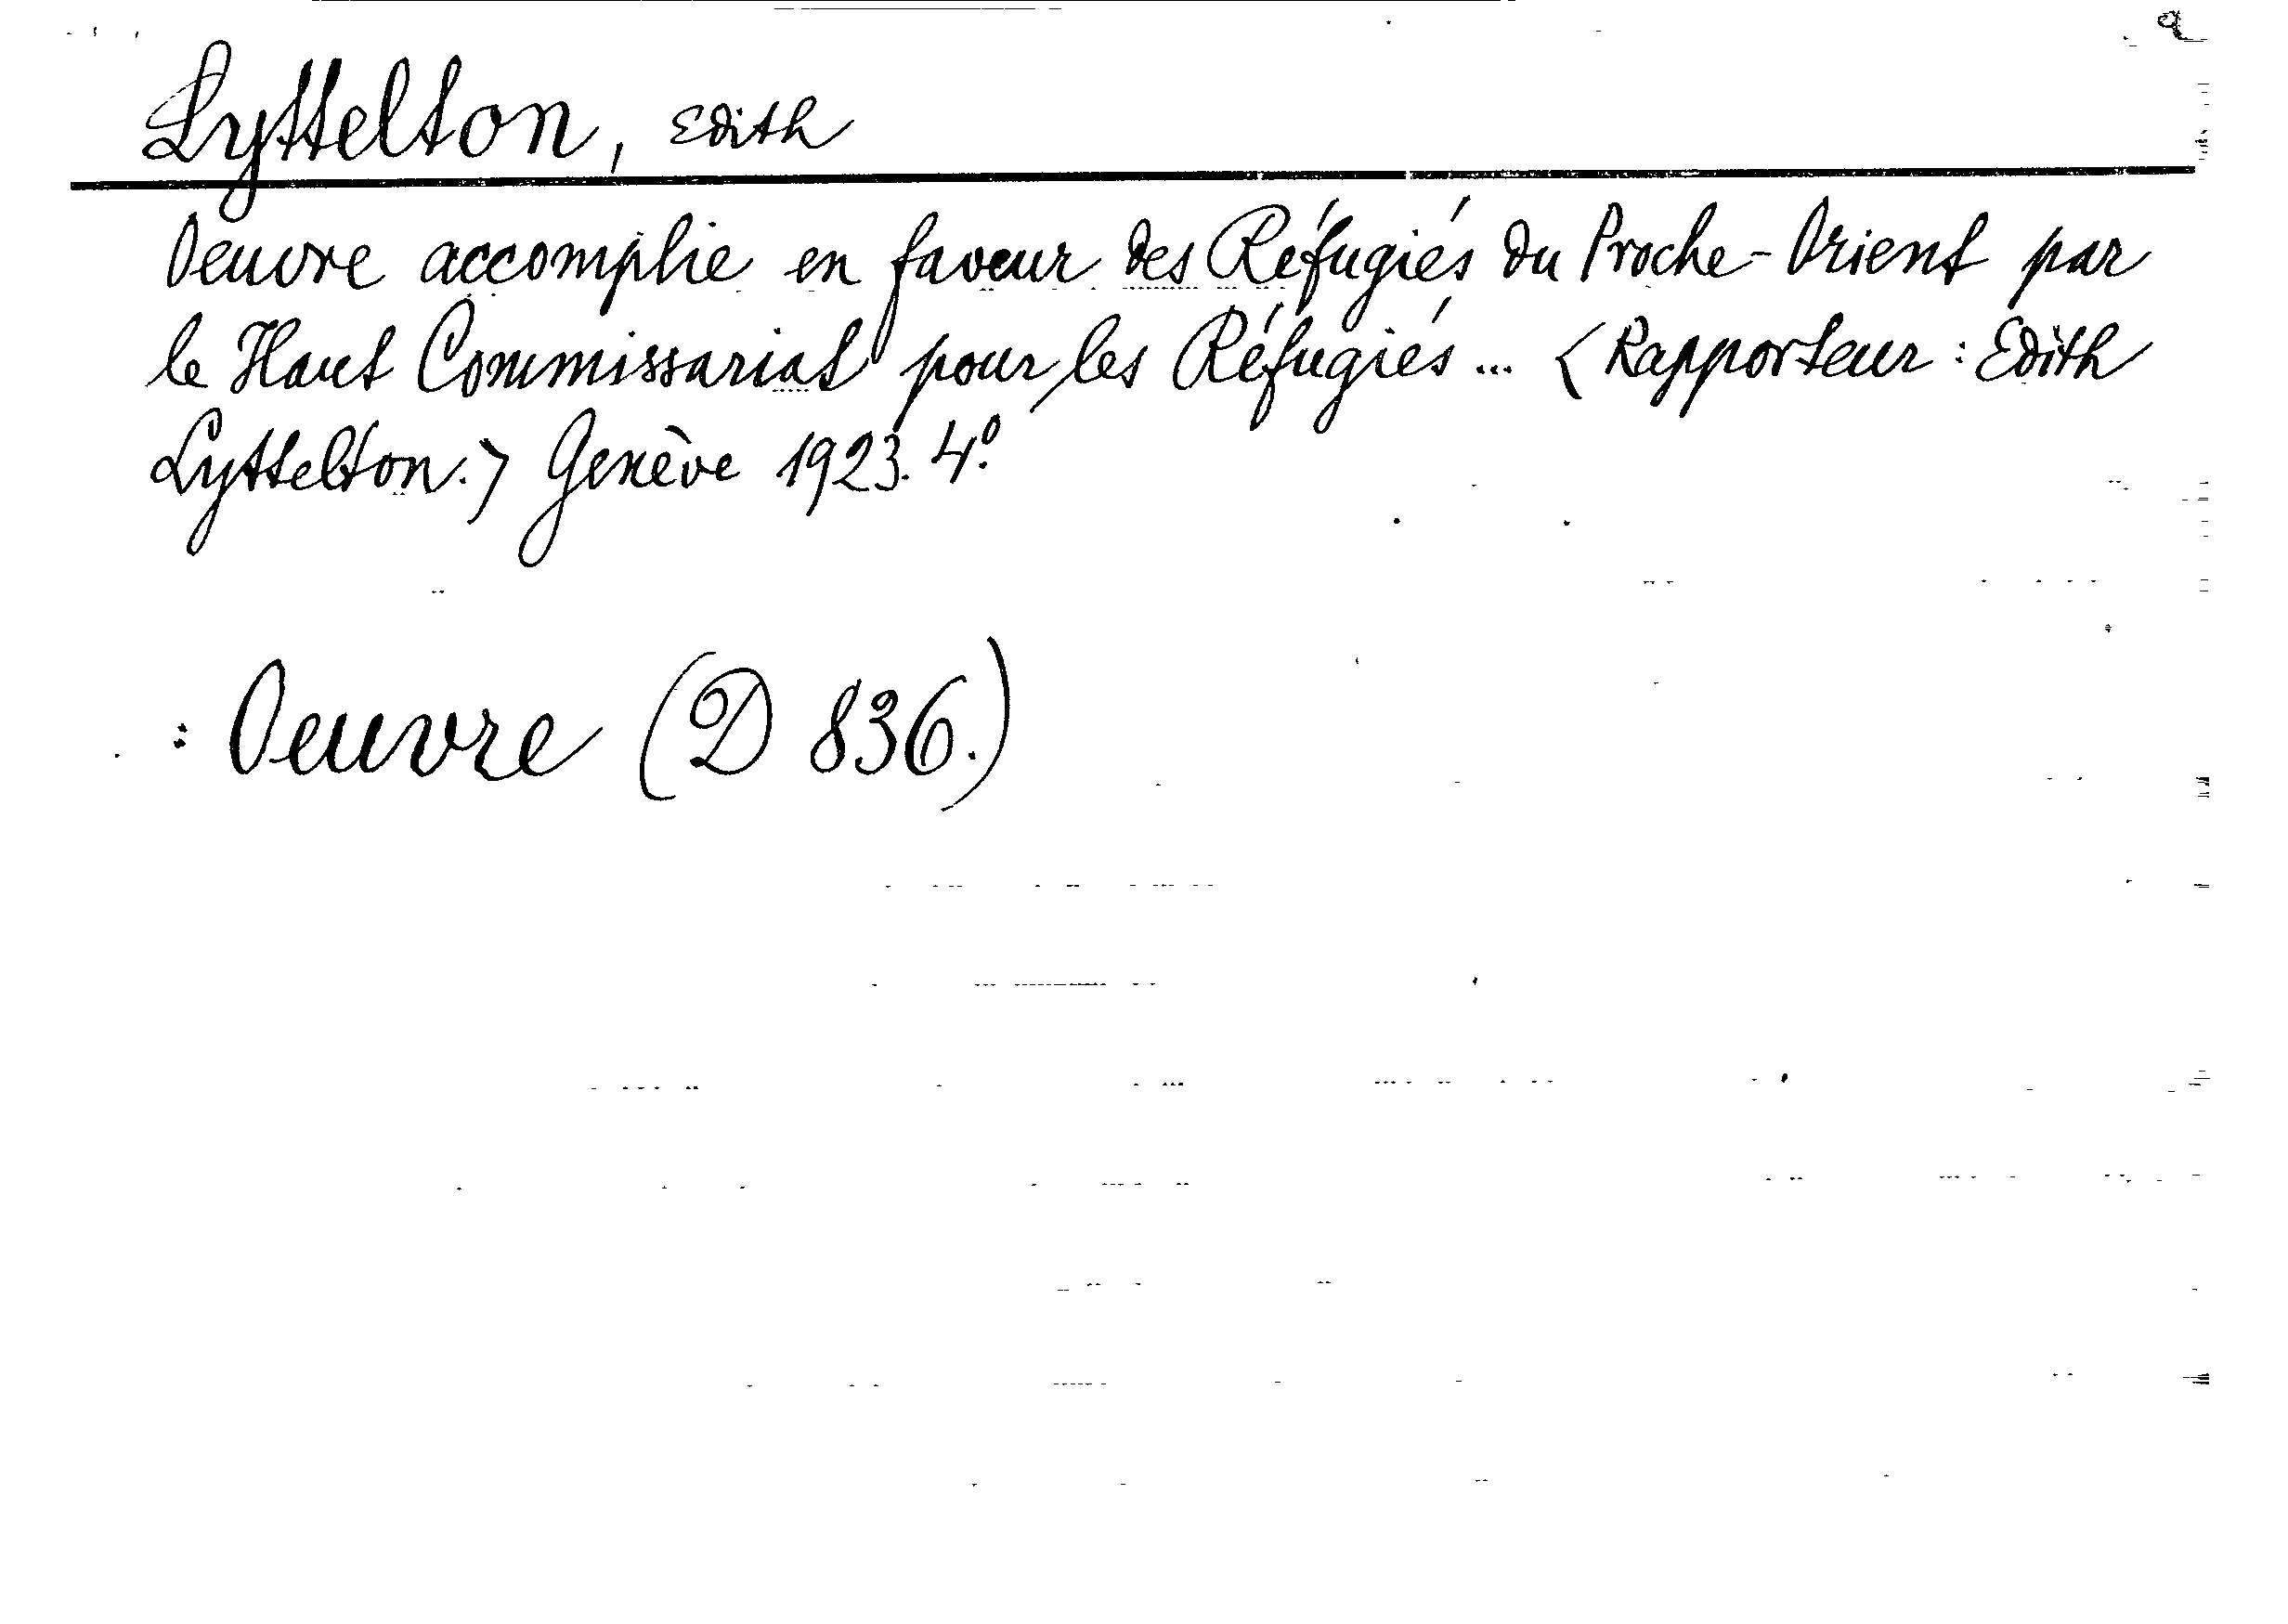 Lyttelton, Edith
Oeuvre accomplie en faveur des Réfugiés du Proche-Orient par
le Haut Commissariat pour les Réfugiés... <Rapporteur: Edith
Lyttelton.> Genève 1923. 4º.
: Oeuvre (D 836.)